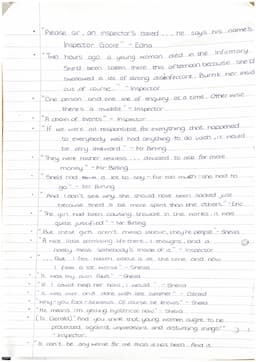 "Please sir, an inspector's called... he says his name's
Inspector Goole" - Edna
"Two hours ago a young woman died in the Infirmary.
She'd been taken there this afternoon because she'd
swallowed a lot of strong disinfectant. Burnt her inside
out of course..." - Inspector
"One person and one line of enquiry at a time. Otherwise
there's a muddle" - Inspector
"A chain of events" - Inspector
"If we were all responsible for everything that happened
to everybody we'd had anything to do with, it would
be very awkward" - Mr Birling
"They were rather restless... decided to ask for more
money" - Mr Birling
"She'd had a lot to say - far too much - she had to
go" - Mr Birling
"And I don't see why she should have been sacked just
because she'd a bit more spirit than the others" - Eric
"The girl had been causing trouble in the works. I was
quite justified" - Mr Birling
"But these girls aren't cheap labour, they're people" - Sheila
"A nice little promising life there, I thought, and a
nasty mess somebody's made of it" - Inspector
"... But I felt rotten about it at the time and now
I feel a lot worse" - Sheila
"It was my own fault" - Sheila
"If I could help her now, I would" - Sheila
"It was over and done with last summer" - Gerald
"Why - you fool - he knows. Of course he knows" - Sheila
"He means I'm getting hysterical now" - Sheila
(to Gerald) "And you think young women ought to be
protected against unpleasant and disturbing things"
- Inspector
"It can't be any worse for me than it has been. And it